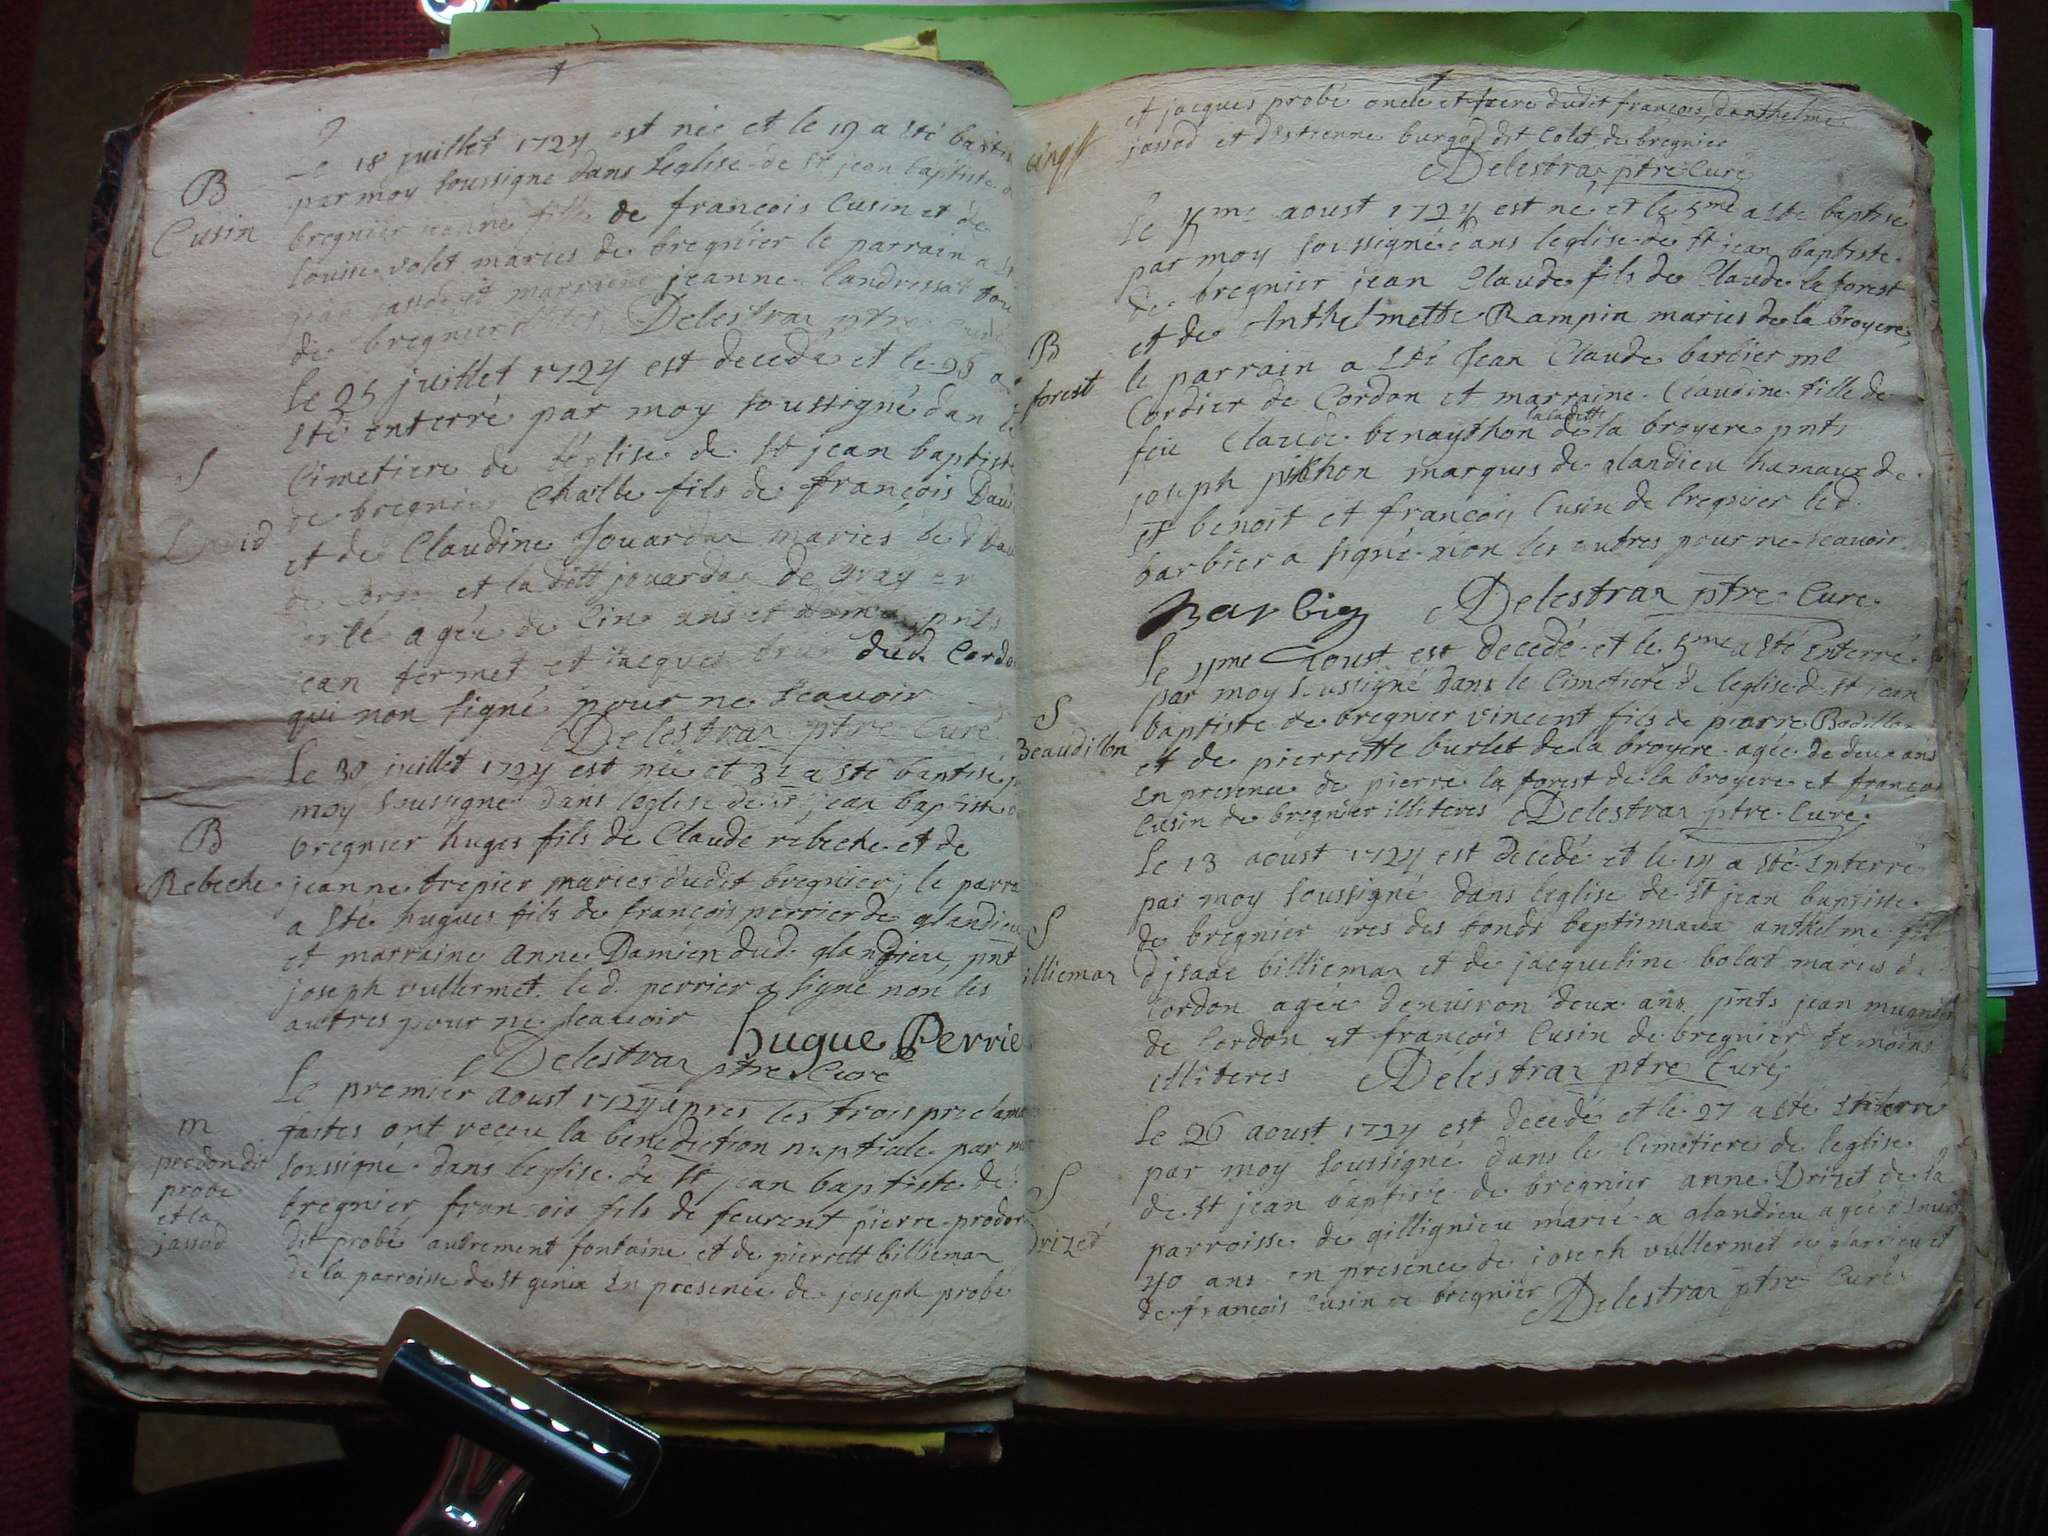 B
Cusin
le 18 juillet 1724 est née et le 19 a sté baptisé
par moy soussigné dans leglise de st jean baptiste de
bregnier jeanne fille de françois Cusin et de
louise volet mariés de bregnier le parrain a sté
jean jassod et marraine jeanne landrissat tou
de bregnier Delestraz ptre Curé
S
David
le 25 juillet 1724 est decedé et le 26 a
sté enterré par moy soussigné dan le
Cimetiere de l'eglise de st jean baptiste
de bregnier Charlle fils de françois Davi
et de Claudine Jouardaz mariés le d Dav
de Cordon et la ditt jouardaz de
agée de Cinq ans et pnts
jean fermet et jacques dud. Cordo
qui non signé pour ne scauoir
Delestraz ptre Curé
B
Rebeche
le 30 juillet 1724 est née et 31 a sté baptisé p
moy soussigné dans leglise de st jean baptiste d
bregnier huges fils de Claude rebeche et de
jeanne trepier mariés dudit bregnier; le parra
a sté hugues fils de françois perrier de glandieu
et marraine anne Damien dud. glandieu, pnt
joseph vullermet. le d. perrier a signé non les
autres pour ne scauoir hugue Perrie
Delestraz ptre Curé
m
prodon dit
probe
et la
jassod
Le premier aoust 1724 apres les trois proclama
faites ont receu la benediction nuptiale par m
soussigné dans leglise de st jean baptiste de
bregnier fransois fils de feurent pierre prodon
dit probé autrement fontaine et de pierrett billiemaz
de la parroisse de st genix En presence de joseph probé
et jacques probé oncle et frere dudit françois, danthelme
jassod et destienne burgod dit Colet de bregnier
Delestraz ptre Curé
B
forest
le 4me aoust 1724 est né et le 5me a sté baptisé
par moy soussigné dans leglise de st jean baptiste
de bregnier jean Claude fils de Claude la forest
et de Anthelmette Rampin mariés de la broyere
le parrain a sté Jean Claude barbier me
Cordier de Cordon et marraine Claudine fille de
feu Claude benaython de la broyere pnts
joseph pithon marques de glandieu hamaux de
st benoit et françois Cusin de bregnier led.
barbier a signé non les autres pour ne scauoir
Barbier Delestraz ptre Curé
S
Beaudillon
le 4me aoust est decedé et le 5me a sté Enterré
par moy soussigné dans le Cimetiere de leglise d st jean
baptiste de bregnier vincent fils de pierre Bodillon
et de pierrette burlet de la broyere agée de deux ans
En presence de pierre la forest de la broyere et françois
Cusin de bregnier illiteres Delestraz ptre Curé
S
illiemaz
Le 13 aoust 1724 est decedé et le 14 a sté Enterré
par moy soussigné dans leglise de st jean baptiste
de bregnier pres des fonds baptismaux anthelme fil
d'jsaac billiemaz et de jacqueline bolat mariés de
Cordon agée denuiron deux ans pnts jean mugnier
de Cordon et françois Cusin de bregnier temoins
illiteres Delestraz ptre Curé
S
Drizet
Le 26 aoust 1724 est decedé et le 27 a sté Enterré
par moy soussigné dans le Cimetiere de leglise
de st jean baptiste de bregnier anne Drizet de la
parroisse de gillignieu marié a glandieu agée d'Enuiro
40 ans en presence de joseph vullermet de glandieu et
de françois Cusin de bregnier Delestraz ptre Curé